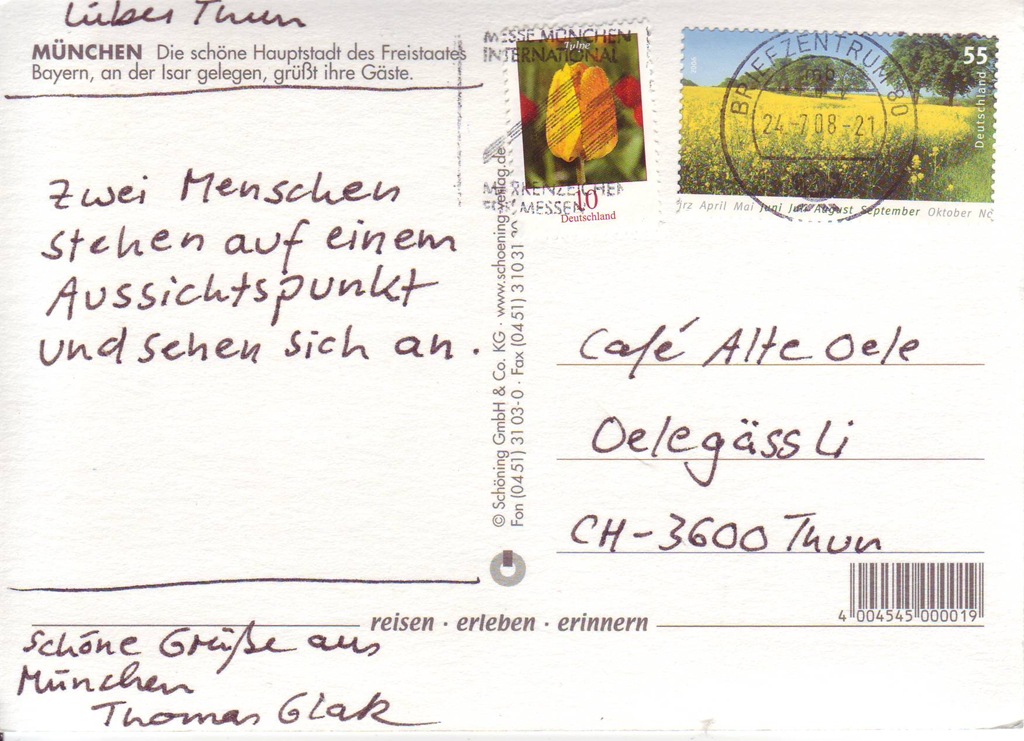 Lieber Thun
MÜNCHEN Die schöne Hauptstadt des Freistaates
Bayern, an der Isar gelegen, grüßt ihre Gäste.
Zwei Menschen
stehen auf einem
Aussichtspunkt
und sehen sich an.
Schöne Grüße aus
München
Thomas Glak
© Schöning GmbH & Co. KG · www.schoening-verlag.de
Fon (04 51) 31 03-0 · Fax (04 51) 3 10 31
MESSE MÜNCHEN
INTERNATIONAL
MARKENZEICHEN
FÜR MESSEN
Tulpe
10
Deutschland
2006
55
Deutschland
BRIEFZENTRUM 80
24.-7.08-21
rz April Mai Juni Juli August September Oktober No
Café Alte Oele
Oelegässli
CH-3600 Thun
4 004545 000019
reisen · erleben · erinnern